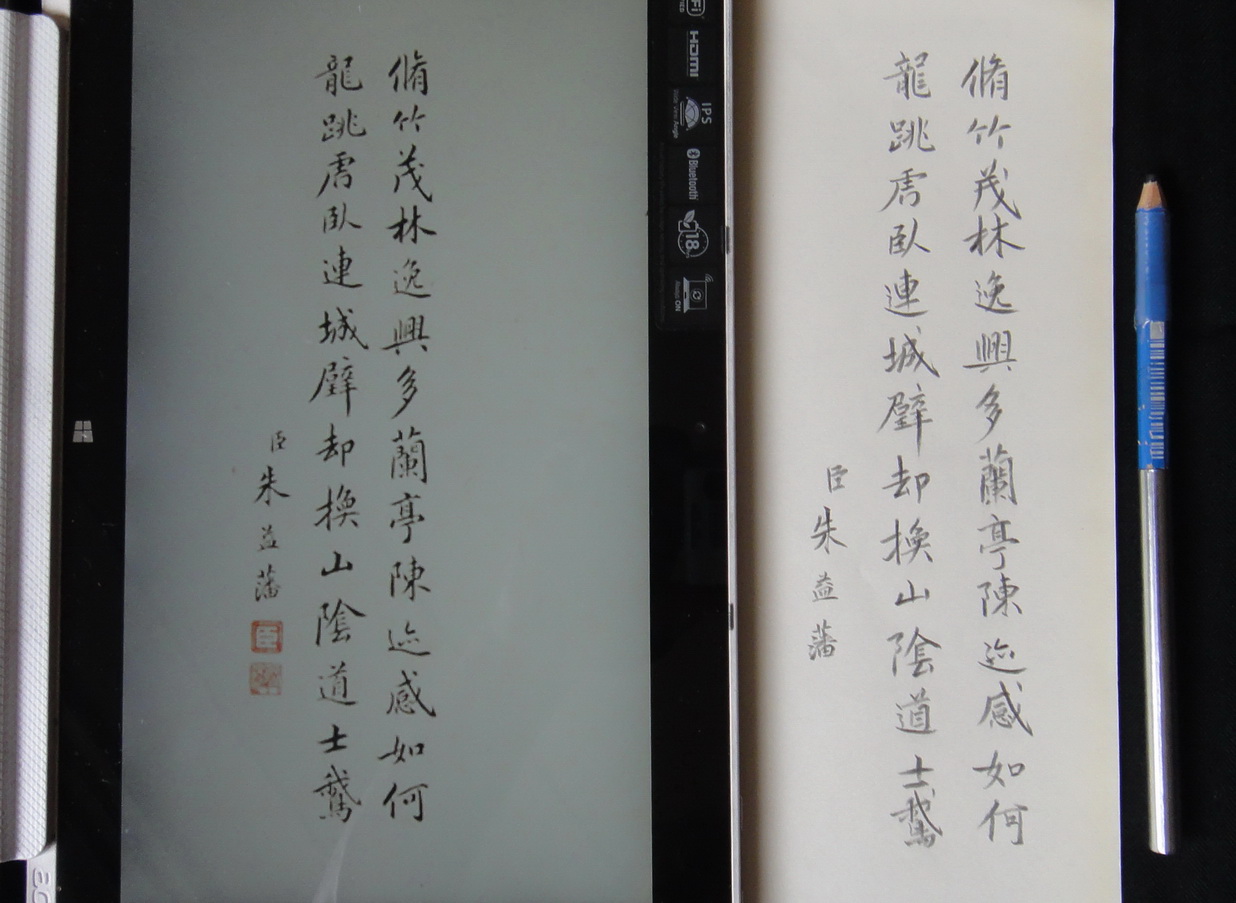 脩竹茂林逸興多蘭亭陳迹感如何
龍跳虎臥連城璧却換山陰道士鵞
臣朱益藩
HDMI
IPS
Wide View Angle
Bluetooth
18
Always ON
脩竹茂林逸興多蘭亭陳迹感如何
龍跳虎臥連城璧却換山陰道士鵞
臣朱益藩